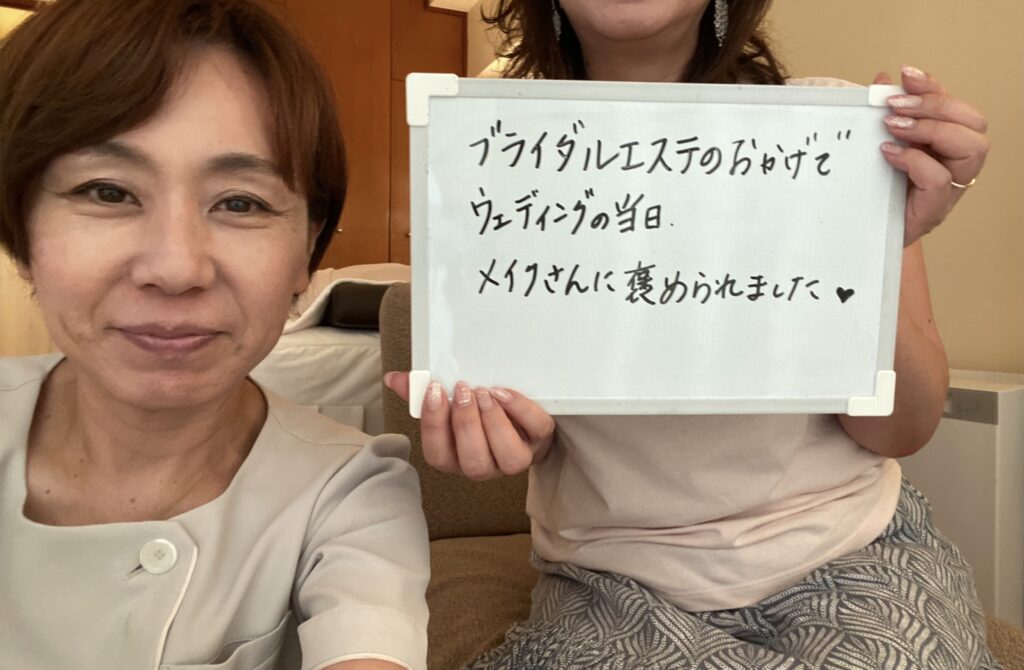 ブライダルエステのおかげで
ウェディングの当日
メイクさんに褒められました♥